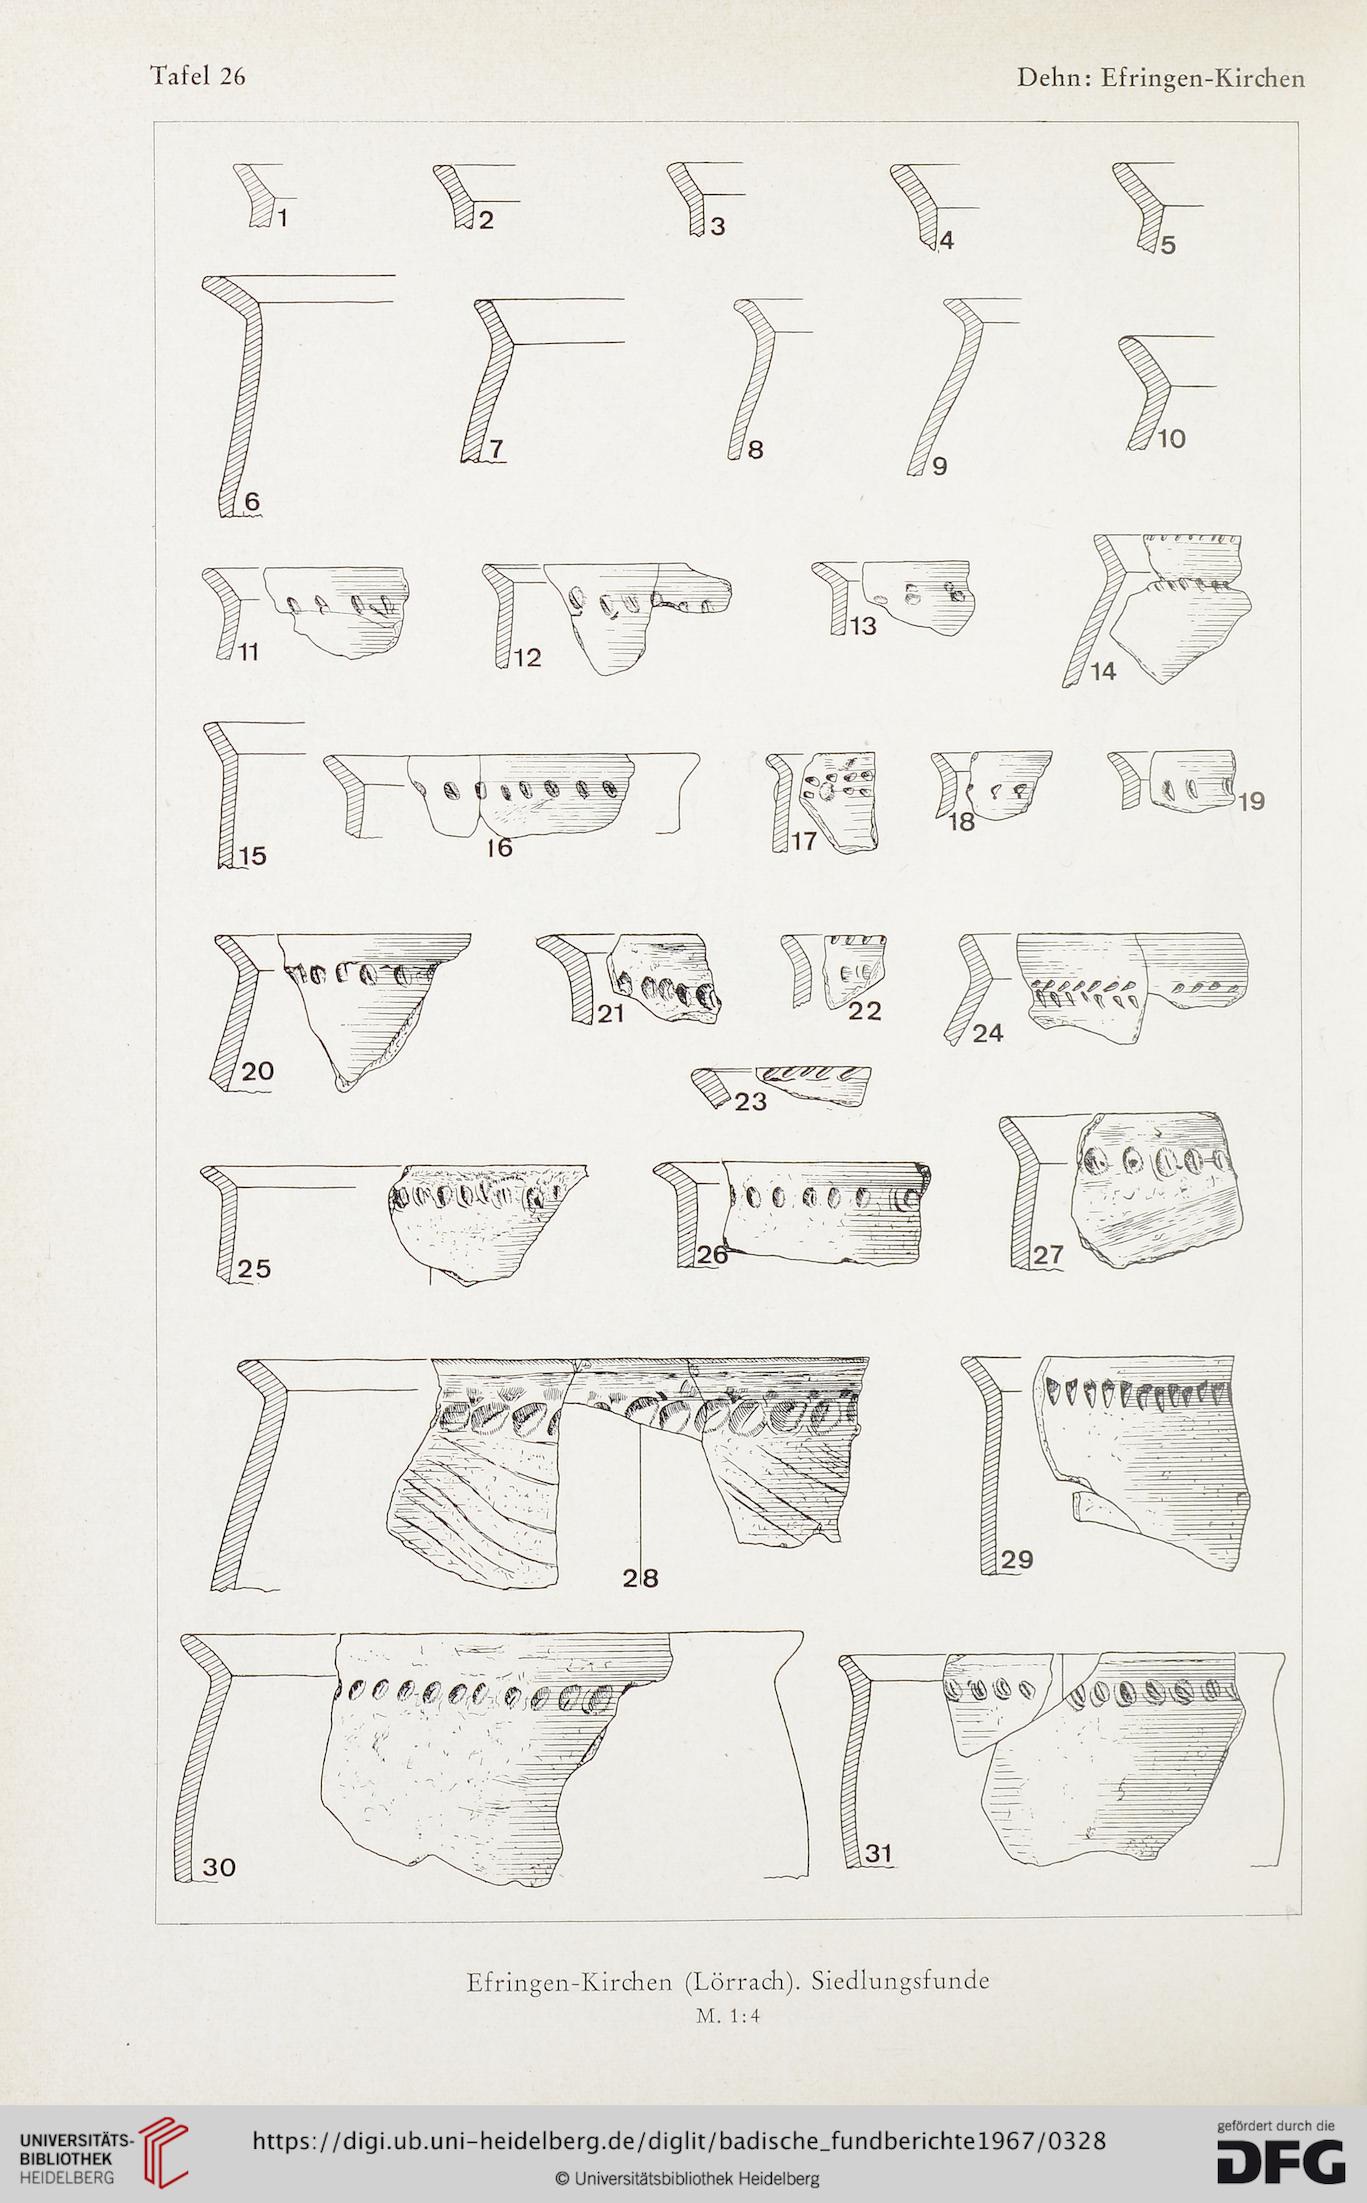 Tafel 26
Dehn: Efringen-Kirchen
1
2
3
4
5
6
7
8
9
10
11
12
13
14
15
16
17
18
19
20
21
22
23
24
25
26
27
28
29
30
31
Efringen-Kirchen (Lörrach). Siedlungsfunde
M. 1:4
UNIVERSITÄTS-
BIBLIOTHEK
HEIDELBERG
https://digi.ub.uni-heidelberg.de/diglit/badische_fundberichte1967/0328
© Universitätsbibliothek Heidelberg
gefördert durch die
DFG